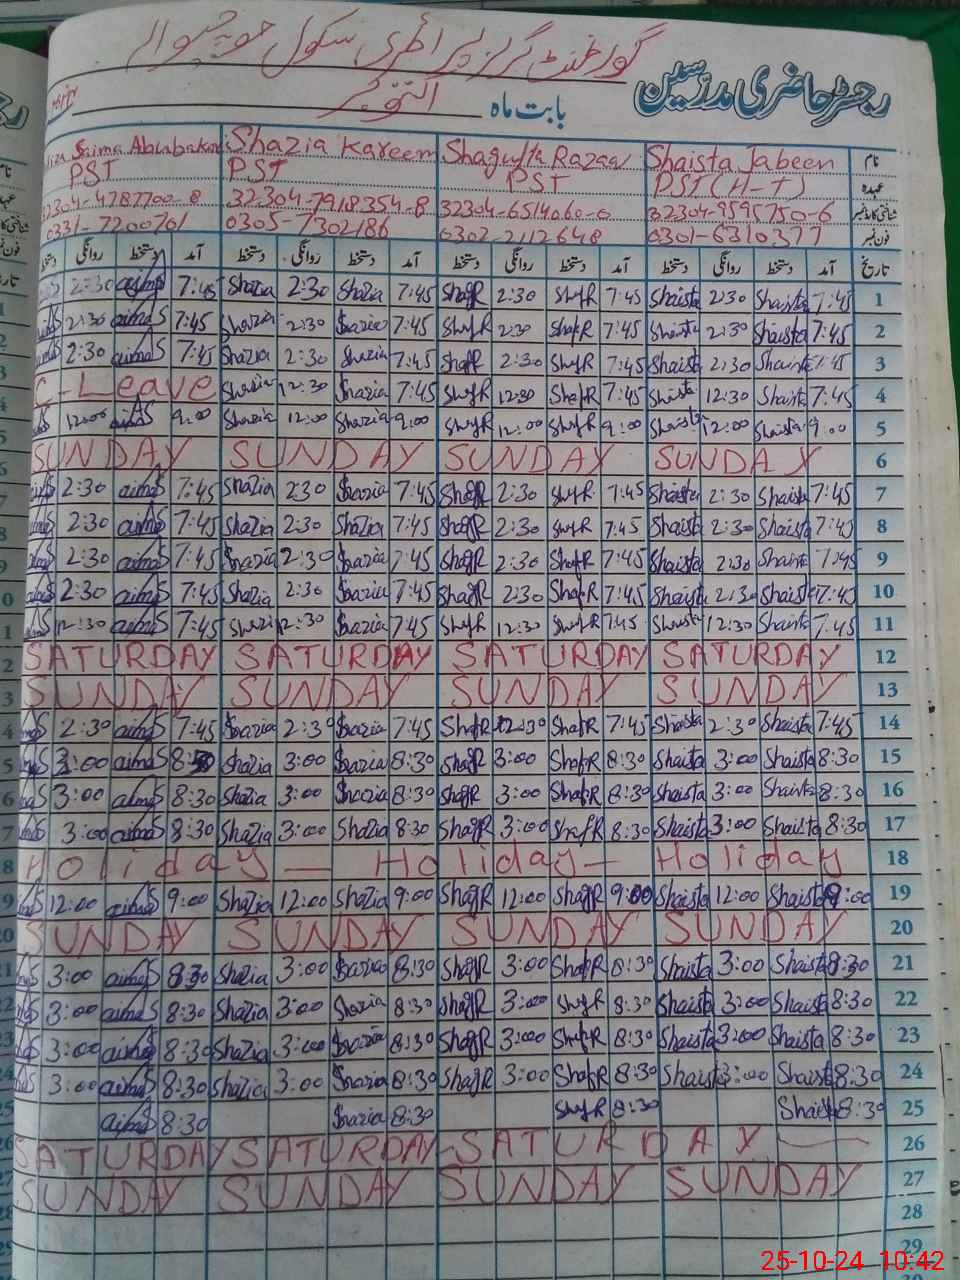 گورنمنٹ گرلز پرائمری سکول
رجسٹر حاضری مدرسین
بابت ماہ اکتوبر
نام Shaista Jabeen Shagufta Razaq Shazia Kareem Saima Abubakar
عہدہ PST (H-T) PST PST PST
شناختی کارڈ نمبر 32304-9595750-6 32304-6514060-0 32304-7918354-8 32304-4787700-8
فون نمبر 0301-6310377 0302-2112648 0305-7302186 0331-7200761
تاریخ آمد دستخط روانگی دستخط آمد دستخط روانگی دستخط آمد دستخط روانگی دستخط آمد دستخط روانگی دستخط
1 7:45 Shaista 2:30 Shaista 7:45 ShgfR 2:30 ShgfR 7:45 Shazia 2:30 Shazia 7:45 aimaS 2:30
2 7:45 Shaista 2:30 Shaista 7:45 ShgfR 2:30 ShgfR 7:45 Shazia 2:30 Shazia 7:45 aimaS 2:30
3 7:45 Shaista 2:30 Shaista 7:45 ShgfR 2:30 ShgfR 7:45 Shazia 2:30 Shazia 7:45 aimaS 2:30
4 7:45 Shaista 12:30 Shaista 7:45 ShgfR 12:30 ShgfR 7:45 Shazia 12:30 Shazia C-Leave
5 9:00 Shaista 12:00 Shaista 9:00 ShgfR 12:00 ShgfR 9:00 Shazia 12:00 Shazia 9:00 aimaS 12:00
6 SUNDAY SUNDAY SUNDAY SUNDAY
7 7:45 Shaista 2:30 Shaista 7:45 ShgfR 2:30 ShgfR 7:45 Shazia 2:30 Shazia 7:45 aimaS 2:30
8 7:45 Shaista 2:30 Shaista 7:45 ShgfR 2:30 ShgfR 7:45 Shazia 2:30 Shazia 7:45 aimaS 2:30
9 7:45 Shaista 2:30 Shaista 7:45 ShgfR 2:30 ShgfR 7:45 Shazia 2:30 Shazia 7:45 aimaS 2:30
10 7:45 Shaista 2:30 Shaista 7:45 ShgfR 2:30 ShgfR 7:45 Shazia 2:30 Shazia 7:45 aimaS 2:30
11 7:45 Shaista 12:30 Shaista 7:45 ShgfR 12:30 ShgfR 7:45 Shazia 12:30 Shazia 7:45 aimaS 12:30
12 SATURDAY SATURDAY SATURDAY SATURDAY
13 SUNDAY SUNDAY SUNDAY SUNDAY
14 7:45 Shaista 2:30 Shaista 7:45 ShgfR 2:30 ShgfR 7:45 Shazia 2:30 Shazia 7:45 aimaS 2:30
15 8:30 Shaista 3:00 Shaista 8:30 ShgfR 3:00 ShgfR 8:30 Shazia 3:00 Shazia 8:30 aimaS 3:00
16 8:30 Shaista 3:00 Shaista 8:30 ShgfR 3:00 ShgfR 8:30 Shazia 3:00 Shazia 8:30 aimaS 3:00
17 8:30 Shaista 3:00 Shaista 8:30 ShgfR 3:00 ShgfR 8:30 Shazia 3:00 Shazia 8:30 aimaS 3:00
18 Holiday — Holiday — Holiday
19 9:00 Shaista 12:00 Shaista 9:00 ShgfR 12:00 ShgfR 9:00 Shazia 12:00 Shazia 9:00 aimaS 12:00
20 SUNDAY SUNDAY SUNDAY SUNDAY
21 8:30 Shaista 3:00 Shaista 8:30 ShgfR 3:00 ShgfR 8:30 Shazia 3:00 Shazia 8:30 aimaS 3:00
22 8:30 Shaista 3:00 Shaista 8:30 ShgfR 3:00 ShgfR 8:30 Shazia 3:00 Shazia 8:30 aimaS 3:00
23 8:30 Shaista 3:00 Shaista 8:30 ShgfR 3:00 ShgfR 8:30 Shazia 3:00 Shazia 8:30 aimaS 3:00
24 8:30 Shaista 3:00 Shaista 8:30 ShgfR 3:00 ShgfR 8:30 Shazia 3:00 Shazia 8:30 aimaS 3:00
25 8:30 Shaista 8:30 ShgfR 8:30 Shazia 8:30 aimaS
26 SATURDAY SATURDAY SATURDAY
27 SUNDAY SUNDAY SUNDAY SUNDAY
28
29
25-10-24 10:42